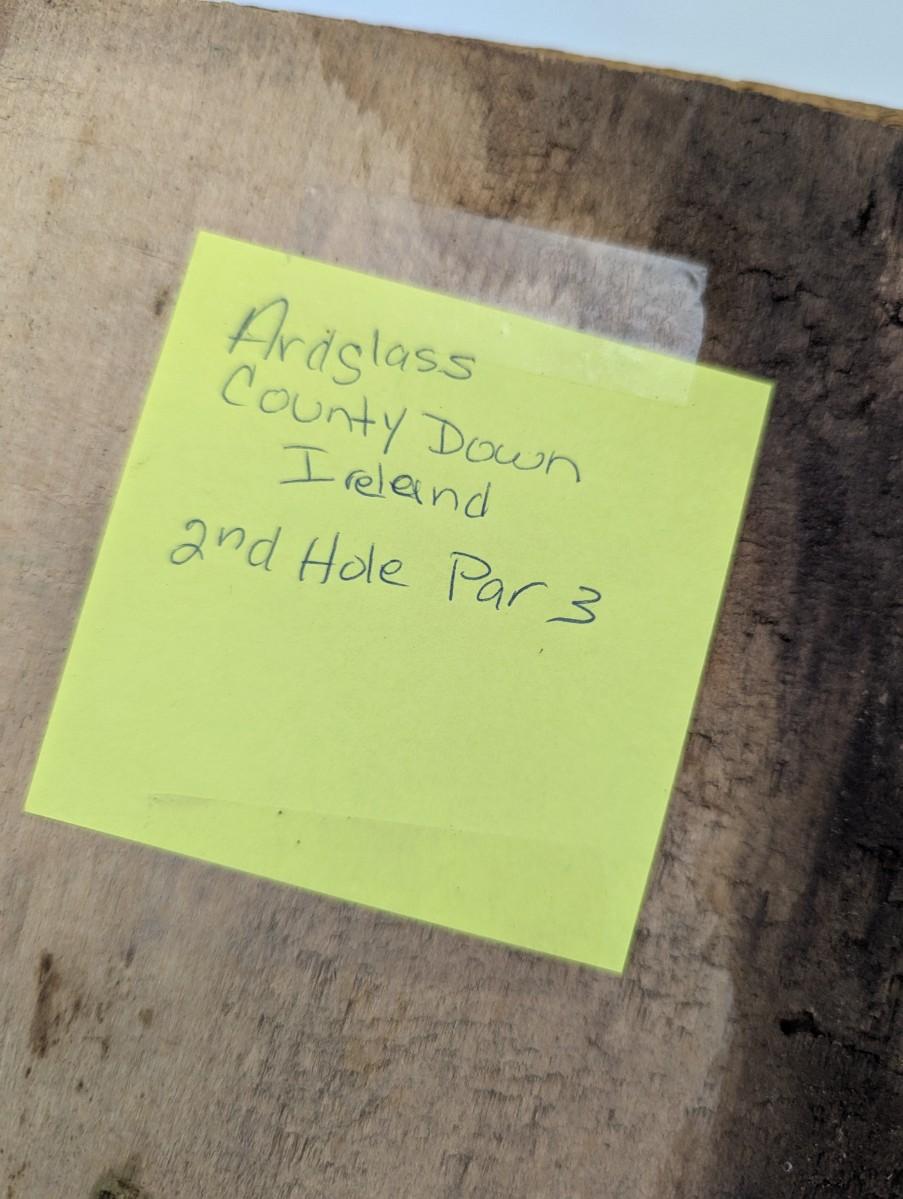 Ardglass
County Down
Ireland
2nd Hole Par 3